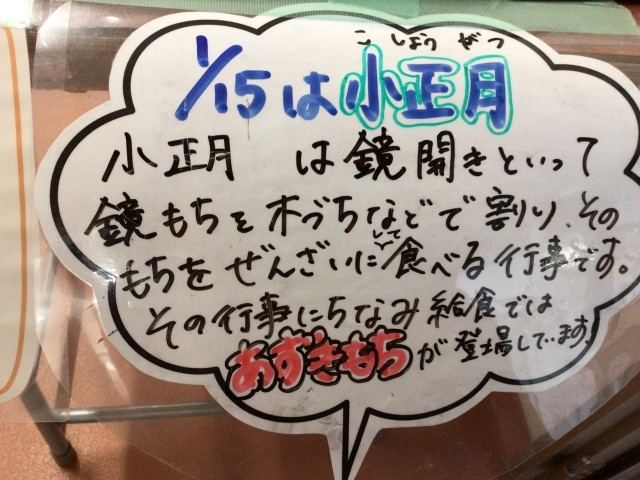 こしょうがつ
1/15は小正月
小正月 は鏡開きといって
鏡もちを木づちなどで割り、その
もちをぜんざいにして食べる行事です。
その行事にちなみ給食では
あずきもちが登場しています。